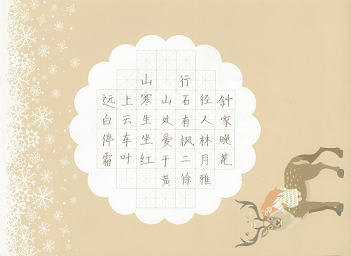 山行
远上寒山石径斜
白云生处有人家
停车坐爱枫林晚
霜叶红于二月花
黄徐雅